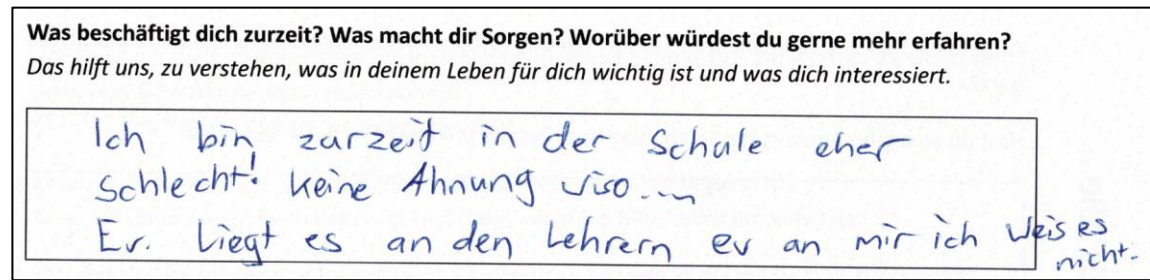 Was beschäftigt dich zurzeit? Was macht dir Sorgen? Worüber würdest du gerne mehr erfahren?
Das hilft uns, zu verstehen, was in deinem Leben für dich wichtig ist und was dich interessiert.
Ich bin zurzeit in der Schule eher
Schlecht! Keine Ahnung Viso...
Ev. Liegt es an den Lehrern ev an mir ich Weis es
nicht.